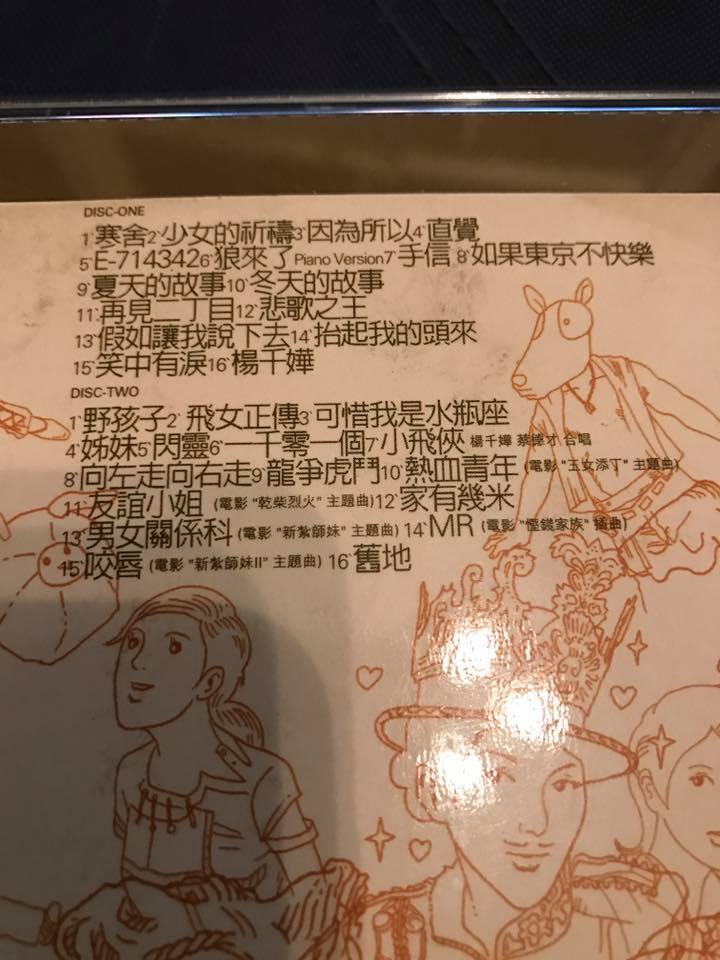 DISC-ONE
1`寒舍2`少女的祈禱3`因為所以4`直覺
5`E-7143426`狼來了Piano Version7`手信8`如果東京不快樂
9`夏天的故事10`冬天的故事
11`再見二丁目12`悲歌之王
13`假如讓我說下去14`抬起我的頭來
15`笑中有淚16`楊千嬅
DISC-TWO
1`野孩子2`飛女正傳3`可惜我是水瓶座
4`姊妹5`閃靈6`一千零一個7`小飛俠 楊千嬅 蔡德才 合唱
8`向左走向右走9`龍爭虎鬥10`熱血青年 (電影"玉女添丁"主題曲)
11`友誼小姐 (電影"乾柴烈火"主題曲)12`家有幾米
13`男女關係科 (電影"新紮師妹"主題曲)14`MR (電影"慳錢家族"插曲)
15`咬唇 (電影"新紮師妹II"主題曲)16`舊地